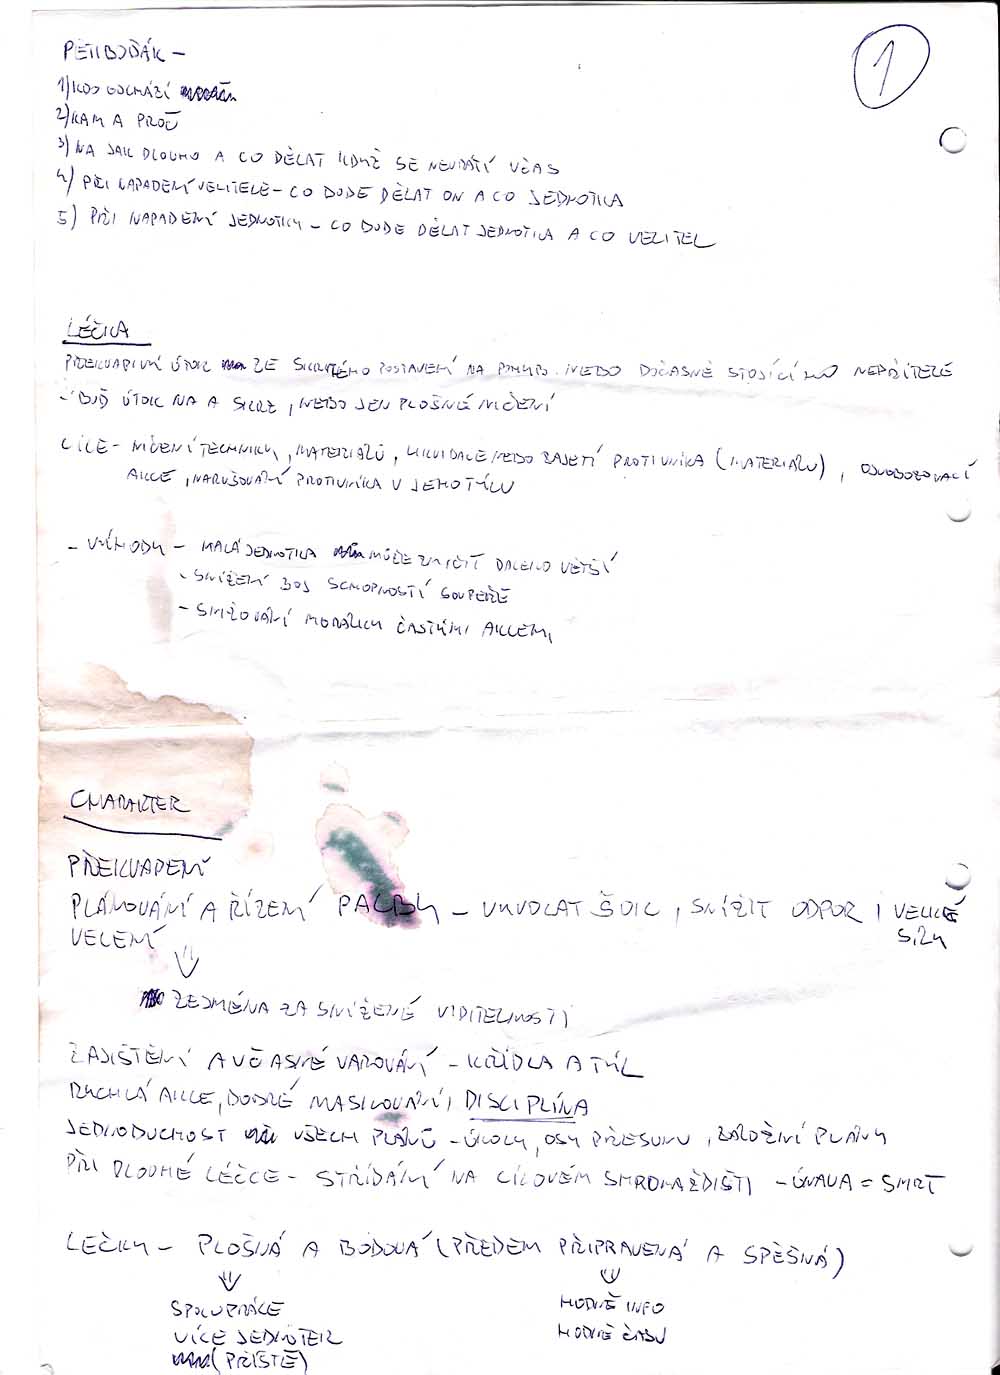 PĚTIBOĎÁK –
1
1) KDO ODCHÁZÍ
2) KAM A PROČ
3) NA JAK DLOUHO A CO DĚLAT KDYŽ SE NEVRÁTÍ VČAS
4) PŘI NAPADENÍ VELITELE – CO BUDE DĚLAT ON A CO JEDNOTKA
5) PŘI NAPADENÍ JEDNOTKY – CO BUDE DĚLAT JEDNOTKA A CO VELITEL
LÉČKA
PŘEKVAPIVÝ ÚTOK ZE SKRYTÉHO POSTAVENÍ NA POHYB. NEBO DOČASNĚ STOJÍCÍHO NEPŘÍTELE
- BUĎ ÚTOK NA A SKRZ, NEBO JEN PLOŠNÉ NIČENÍ
CÍLE – NIČENÍ TECHNIKY, MATERIÁLŮ, LIKVIDACE NEBO ZAJETÍ PROTIVNÍKA (MATERIÁLU), OSVOBOZOVACÍ
AKCE, NARUŠOVÁNÍ PROTIVNÍKA V JEHO TÝLU
- VÝHODY – MALÁ JEDNOTKA MŮŽE ZNIČIT DALEKO VĚTŠÍ
- SNÍŽENÍ BOJ SCHOPNOSTÍ SOUPEŘE
- SNIŽOVÁNÍ MORÁLKY ČASTÝMI AKCEMI
CHARAKTER
PŘEKVAPENÍ
PLÁNOVÁNÍ A ŘÍZENÍ PALBY – VYVOLAT ŠOK, SNÍŽIT ODPOR, VELKÉ
SÍLY
VELENÍ
ZEJMÉNA ZA SNÍŽENÉ VIDITELNOSTI
ZAJIŠTĚNÍ A VČASNÉ VAROVÁNÍ – KŘÍDLA A TÝL
RYCHLÁ AKCE, DOBRÉ MASKOVÁNÍ, DISCIPLÍNA
JEDNODUCHOST VŠECH PLÁNŮ – ÚKOLY, OSY PŘESUNU, ZÁLOŽNÍ PLÁNY
PŘI DLOUHÉ LÉČCE – STŘÍDÁNÍ NA CÍLOVÉM SHROMAŽDIŠTI – ÚNAVA = SMRT
LÉČKY – PLOŠNÁ A BODOVÁ (PŘEDEM PŘIPRAVENÁ A SPĚŠNÁ)
SPOLUPRÁCE
VÍCE JEDNOTEK
(PŘÍŠTĚ)
HODNĚ INFO
HODNĚ ČASU